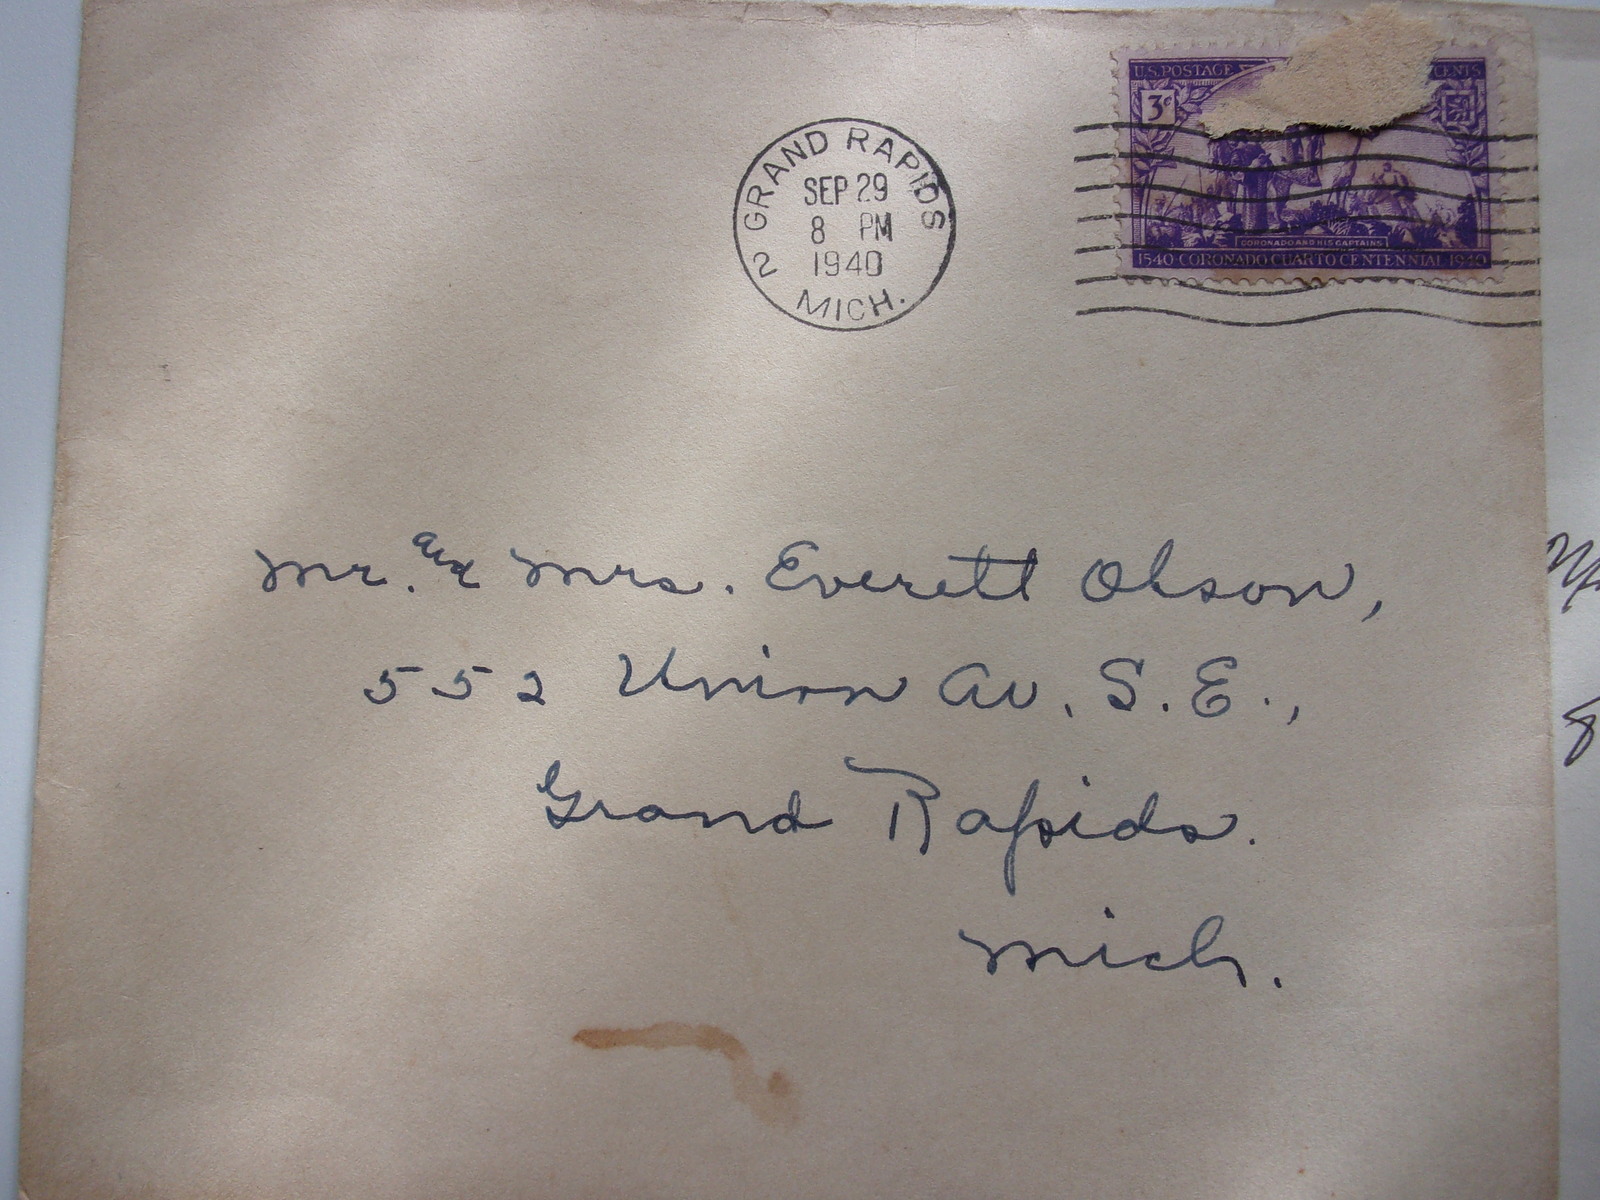 U.S. POSTAGE CENTS
3¢
CORONADO AND HIS CAPTAINS
1540 CORONADO CUARTO CENTENNIAL 1940
GRAND RAPIDS
SEP 29
8 PM
1940
2
MICH.
Mr. and Mrs. Everett Olson,
552 Union Av. S.E.,
Grand Rapids.
Mich.